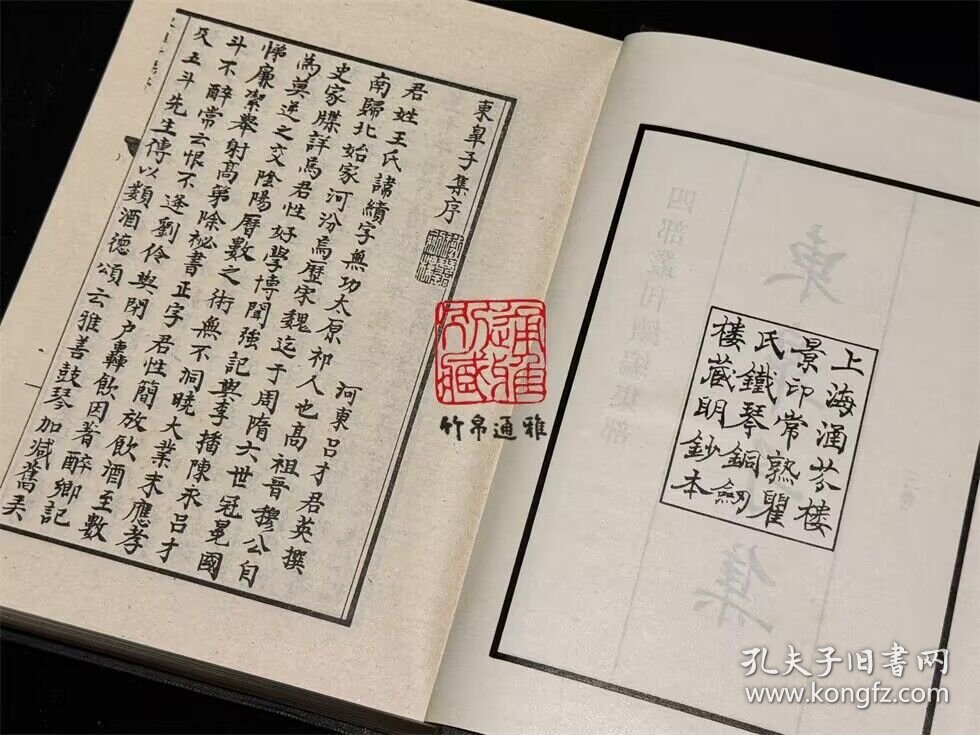 上海涵芬樓
景印常熟瞿
氏鐵琴銅劒
樓藏明鈔本
東臯子集序
河東呂才君英撰
君姓王氏諱績字無功太原祁人也高祖晉穆公自
南歸北始家河汾焉歷宋魏迄于周隋六世冠冕國
史家牒詳焉君性好學博聞強記與李播陳永呂才
為莫逆之交陰陽曆數之術無不洞曉大業末應孝
悌廉潔舉射高第除祕書正字君性簡放飲酒至數
斗不醉常云恨不逢劉伶與閉户轟飲因著醉鄉記
及五斗先生傳以類酒德頌云雅善鼓琴加減舊弄
四部叢刊續編集部
東
集
通雅
竹帛通雅
孔夫子旧书网
www.kongfz.com